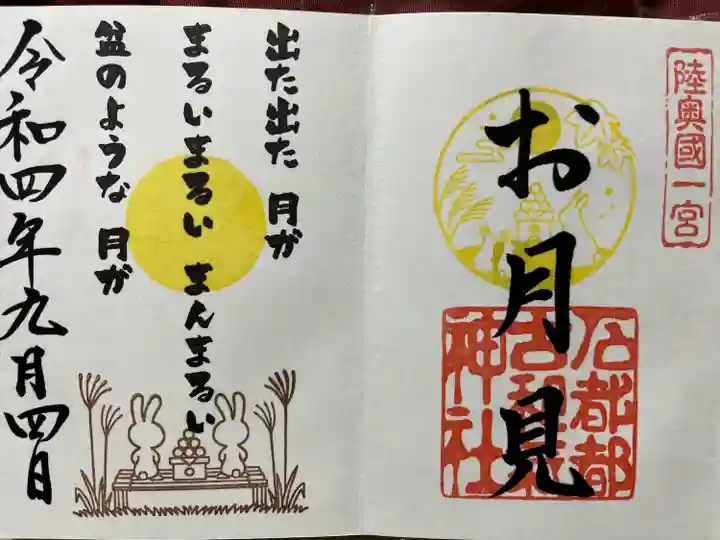 陸奥國一宮
お月見
出た出た 月が
まるいまるい まんまるい
盆のような 月が
令和四年九月四日